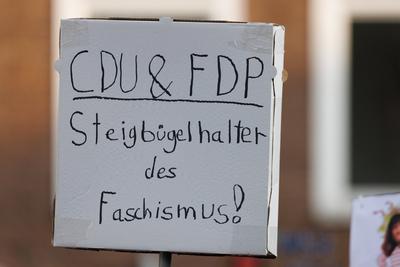 CDU & FDP
Steigbügelhalter
des
Faschismus!